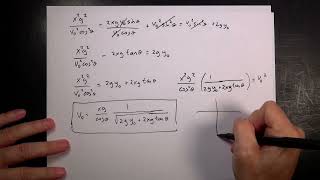 x²g² / v₀²cos²θ = 2xg v₀ sinθ / v₀ cosθ + v₀² sin²θ = v₀² sin²θ + 2g y₀
x²g² / v₀²cos²θ - 2xg tanθ = 2g y₀
x²g² / v₀²cos²θ = 2g y₀ + 2xg tanθ
x²g² / cos²θ ( 1 / 2g y₀ + 2xg tanθ ) = v₀²
v₀ = xg / cosθ 1 / √(2g y₀ + 2xg tanθ)